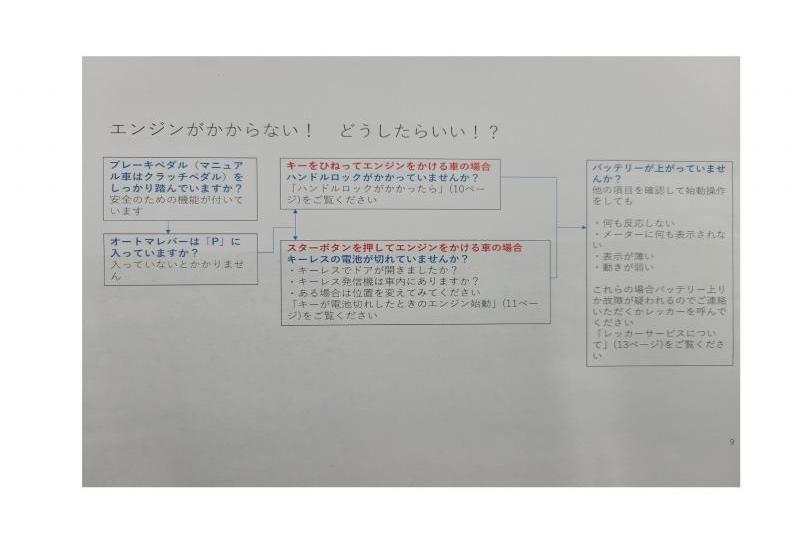 エンジンがかからない！　どうしたらいい！？
ブレーキペダル（マニュア
ル車はクラッチペダル）を
しっかり踏んでいますか？
安全のための機能が付いて
います
オートマレバーは「P」に
入っていますか？
入っていないとかかりませ
ん
キーをひねってエンジンをかける車の場合
ハンドルロックがかかっていませんか？
「ハンドルロックがかかったら」(10ペー
ジ)をご覧ください
スターボタンを押してエンジンをかける車の場合
キーレスの電池が切れていませんか？
・キーレスでドアが開きましたか？
・キーレス発信機は車内にありますか？
・ある場合は位置を変えてみてください
「キーが電池切れしたときのエンジン始動」(11ペー
ジ)をご覧ください
バッテリーが上がっていませ
んか？
他の項目を確認して始動操作
をしても
・何も反応しない
・メーターに何も表示されな
い
・表示が薄い
・動きが弱い
これらの場合バッテリー上り
か故障が疑われるのでご連絡
いただくかレッカーを呼んで
ください
「レッカーサービスについ
て」(13ページ)をご覧くださ
い
9